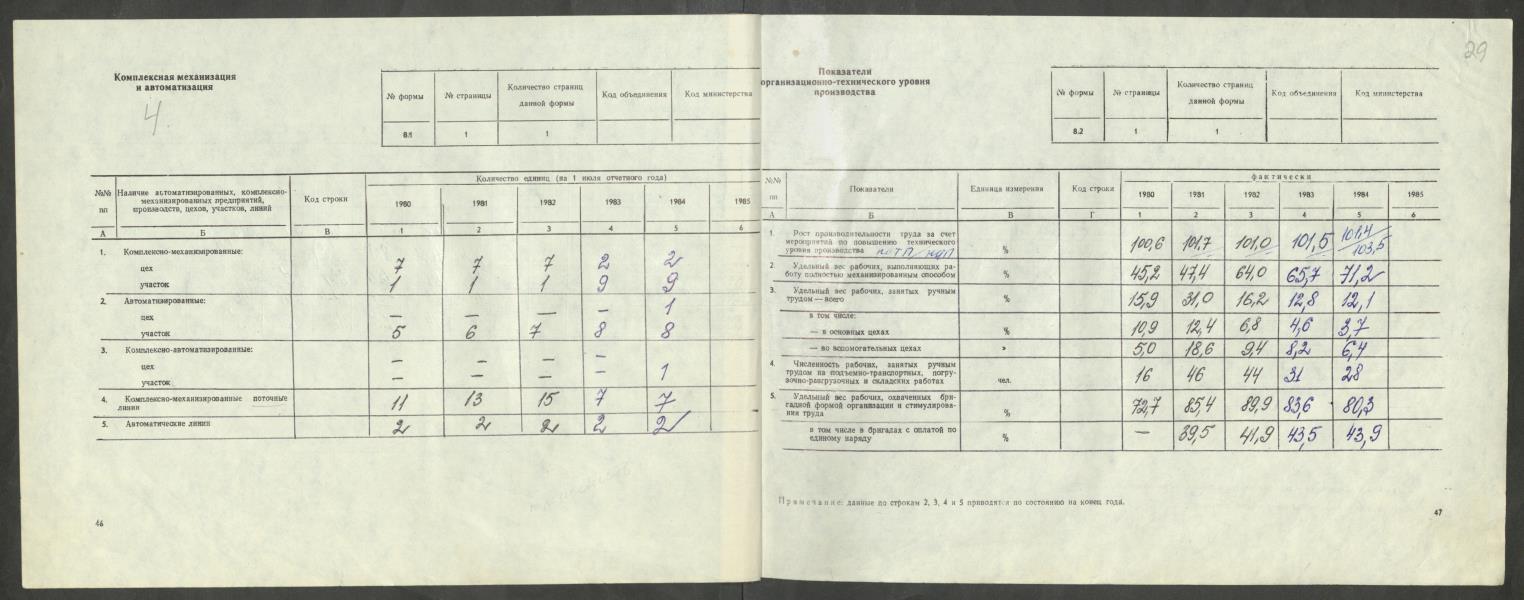 Комплексная механизация
и автоматизация
4.
№ формы № страницы Количество страниц данной формы Код объединения Код министерства
8.1 1 1
№№ пп Наличие автоматизированных, комплексно-механизированных предприятий, производств, цехов, участков, линий Код строки Количество единиц (на 1 июля отчетного года)
1980 1981 1982 1983 1984 1985
А Б В 1 2 3 4 5 6
1. Комплексно-механизированные:
цех 7 7 7 2 2
участок 1 1 1 9 9
2. Автоматизированные:
цех — — — — 1
участок 5 6 7 8 8
3. Комплексно-автоматизированные:
цех — — — —
участок — — — — 1
4. Комплексно-механизированные поточные линии 11 13 15 7 7
5. Автоматические линии 2 2 2 2 2
46
29
Показатели
организационно-технического уровня
производства
№ формы № страницы Количество страниц данной формы Код объединения Код министерства
8.2 1 1
№№ пп Показатели Единица измерения Код строки фактически
1980 1981 1982 1983 1984 1985
А Б В Г 1 2 3 4 5 6
1. Рост производительности труда за счет
мероприятий по повышению технического
уровня производства % 100,6 101,7 101,0 101,5 101,4/103,5
2. Удельный вес рабочих, выполняющих работу полностью механизированным способом % 45,2 47,4 64,0 65,7 71,2
3. Удельный вес рабочих, занятых ручным
трудом — всего % 15,9 31,0 16,2 12,8 12,1
в том числе:
— в основных цехах % 10,9 12,4 6,8 4,6 3,7
— во вспомогательных цехах » 5,0 18,6 9,4 8,2 6,4
4. Численность рабочих, занятых ручным
трудом на подъемно-транспортных, погрузочно-разгрузочных и складских работах чел. 16 46 44 31 28
5. Удельный вес рабочих, охваченных бригадной формой организации и стимулирования труда % 72,7 85,4 89,9 83,6 80,3
в том числе в бригадах с оплатой по
единому наряду % — 39,5 41,9 43,5 43,9
Примечание: данные по строкам 2, 3, 4 и 5 приводятся по состоянию на конец года.
47